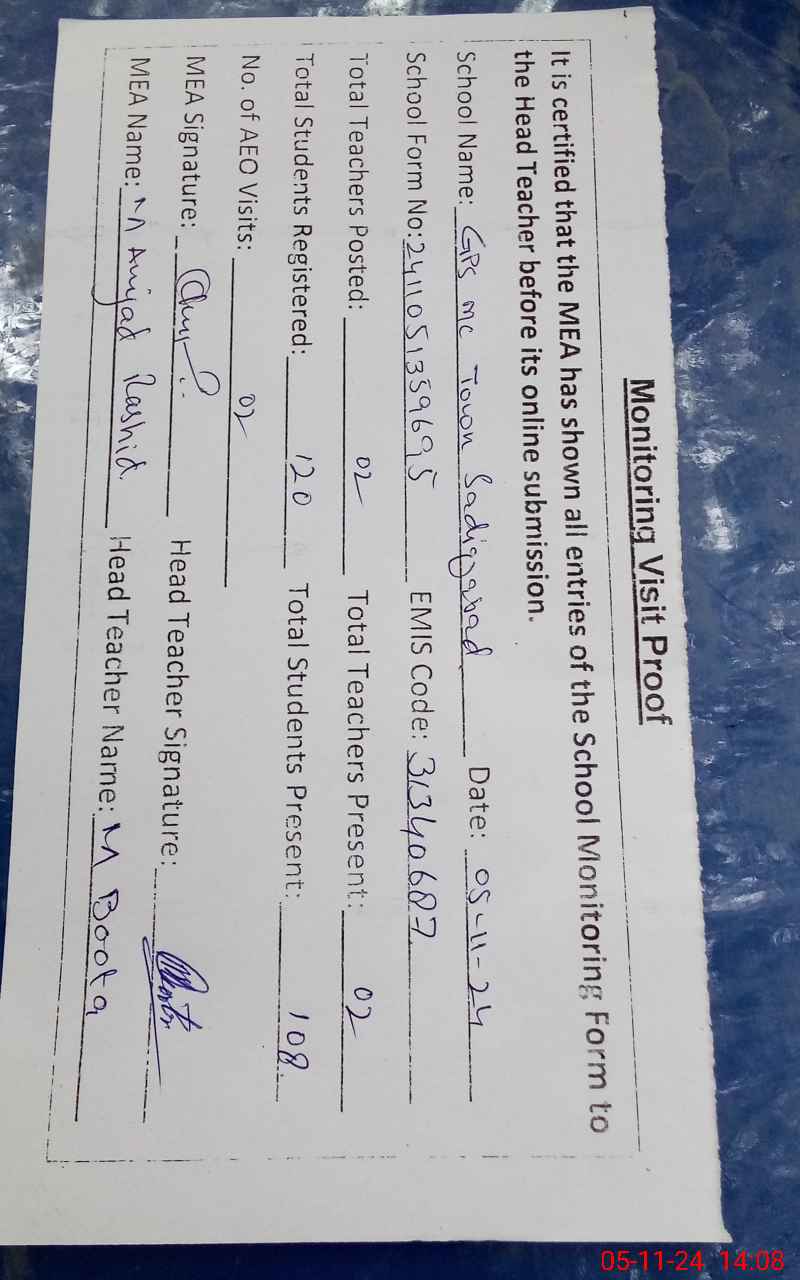 Monitoring Visit Proof
It is certified that the MEA has shown all entries of the School Monitoring Form to
the Head Teacher before its online submission.
School Name: GPS MC Town Sadiqabad Date: 05-11-24
School Form No: 2411051359695 EMIS Code: 31340687
Total Teachers Posted: 02 Total Teachers Present: 02
Total Students Registered: 120 Total Students Present: 108
No. of AEO Visits: 02
MEA Signature: Head Teacher Signature:
MEA Name: M Amjad Rashid Head Teacher Name: M Boota
05-11-24 14:08